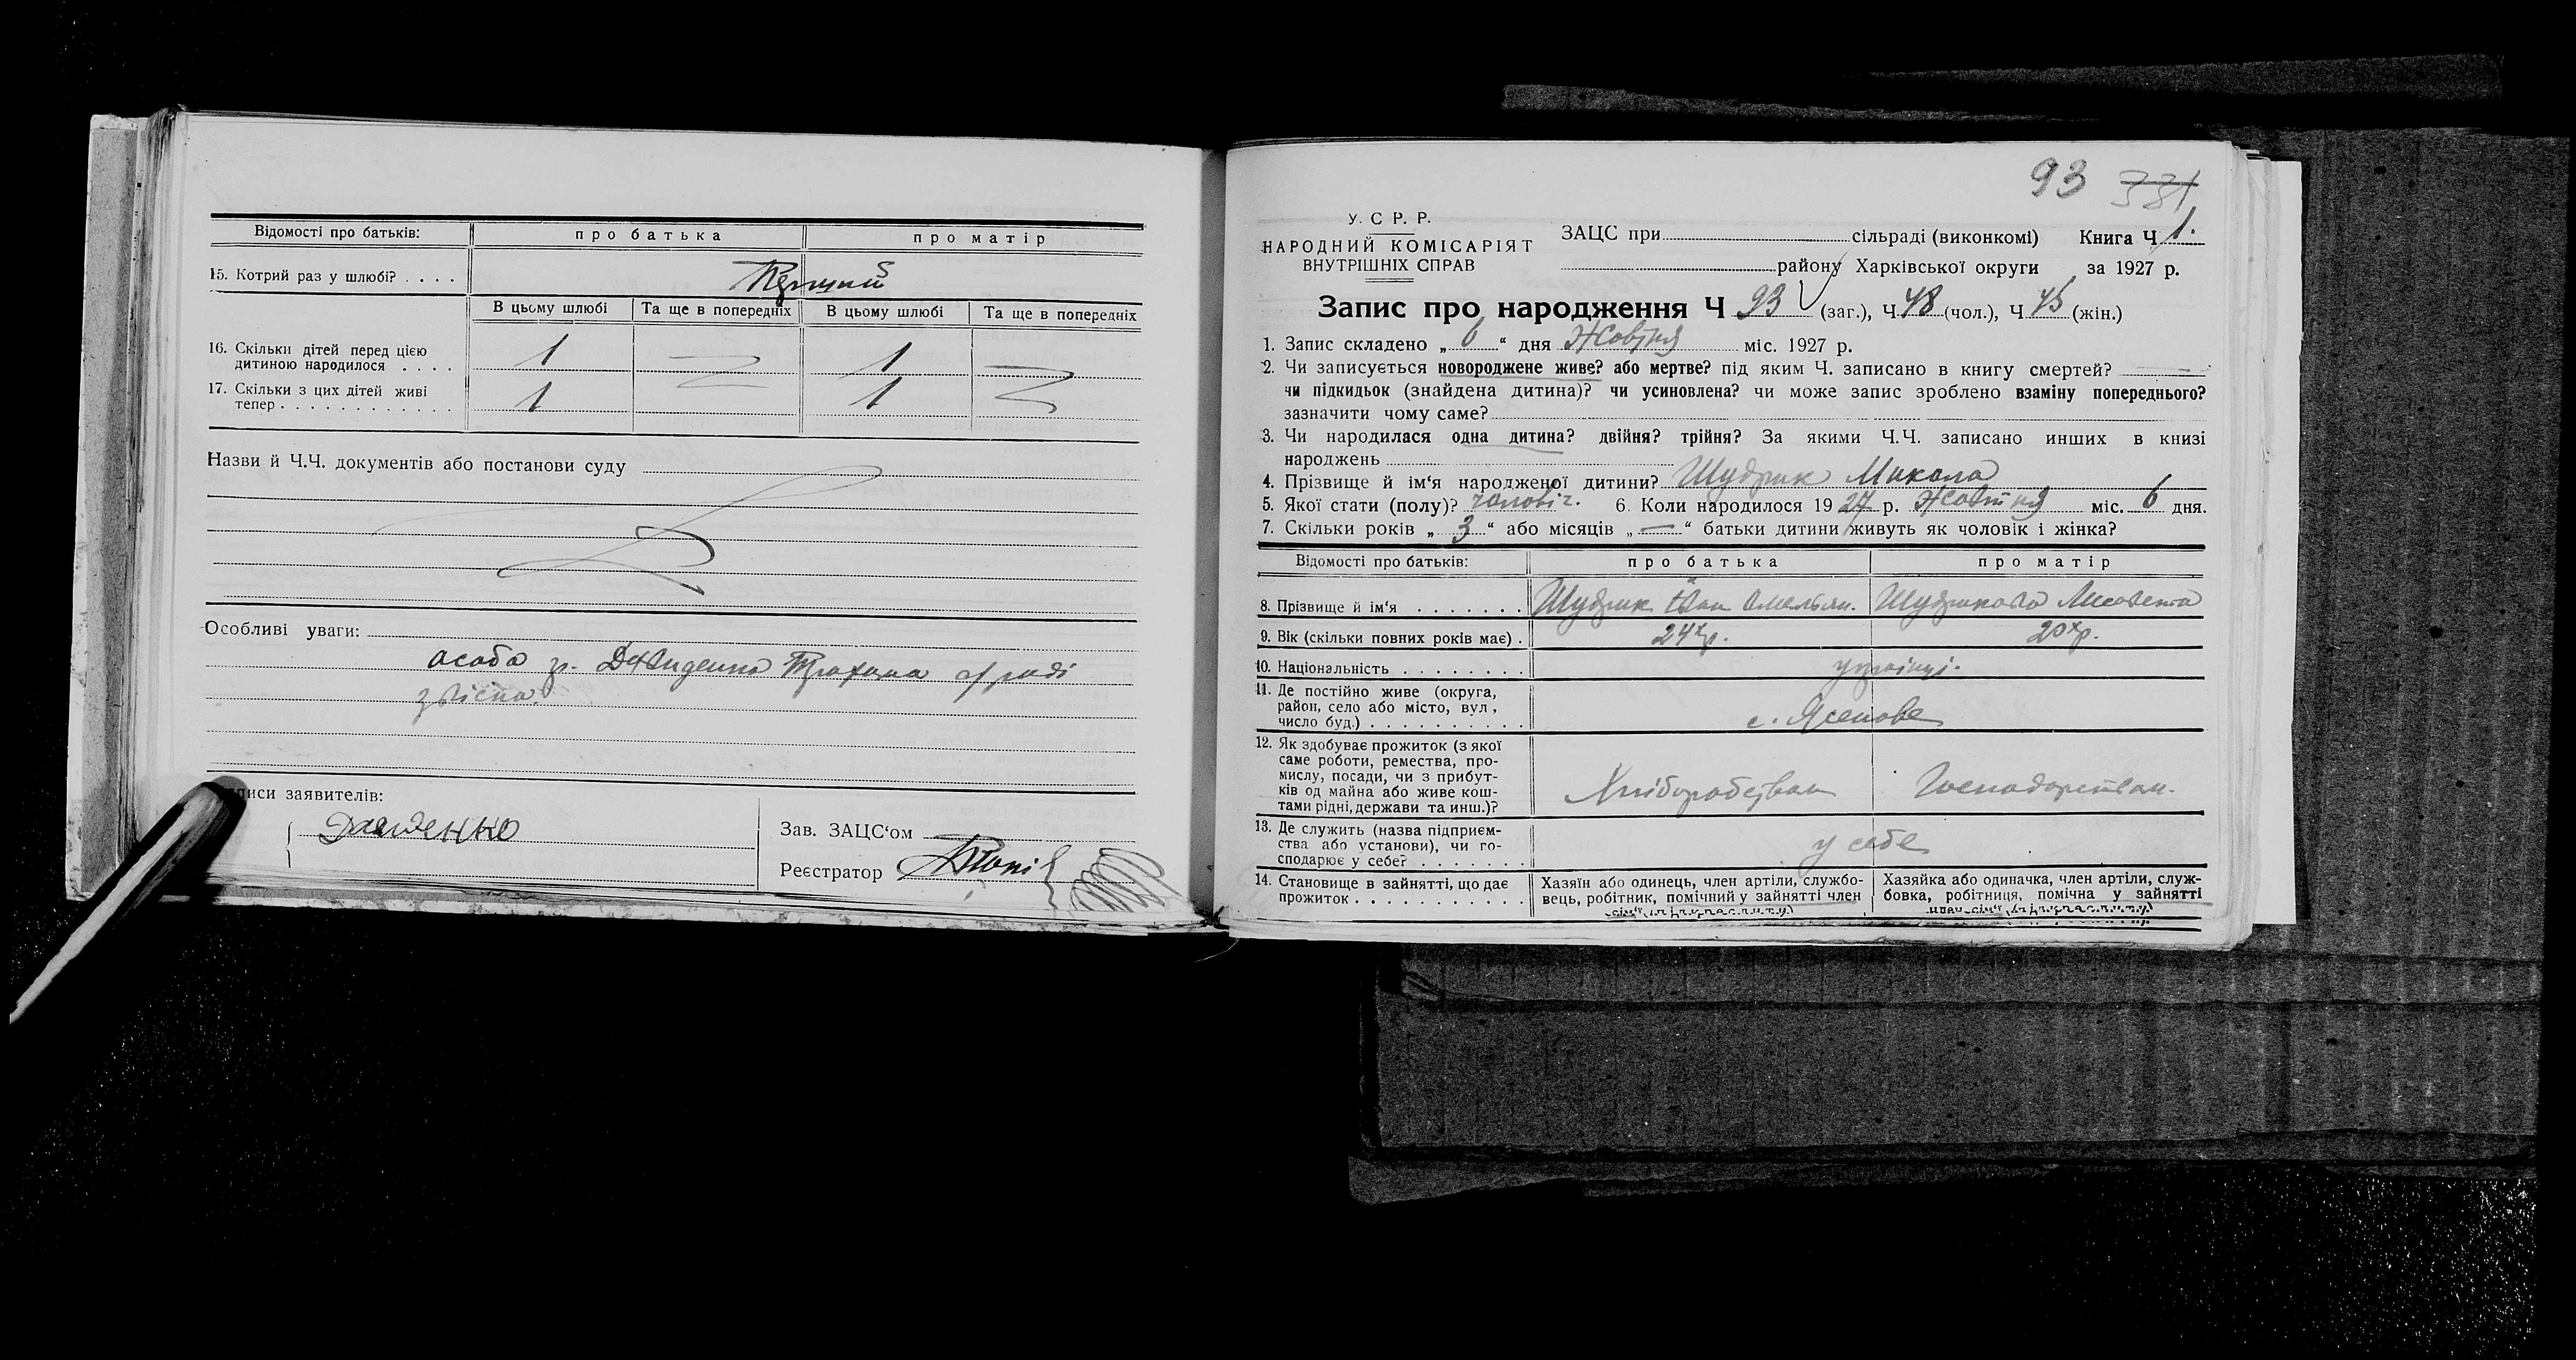 Відомості про батьків: про батька про матір
15. Котрий раз у шлюбі? . . . . Перший
В цьому шлюбі Та ще в попередніх В цьому шлюбі Та ще в попередніх
16. Скільки дітей перед цією
дитиною народилося . . . . 1 — 1 —
17. Скільки з цих дітей живі
тепер . . . . . . . . . . . . 1 — 1 —
Назви й Ч.Ч. документів або постанови суду
Особливі уваги:
особа гр. Давиденка Трохима с/раді
звісна.
писи заявителів:
Зав. ЗАЦС‘ом
Реєстратор
93 381
У. С Р. Р.
НАРОДНИЙ КОМІСАРІЯТ
ВНУТРІШНІХ СПРАВ
ЗАЦС при сільраді (виконкомі) Книга Ч 1.
району Харківської округи за 1927 р.
Запис про народження Ч 93 (заг.), Ч 48 (чол.), Ч 45 (жін.)
1. Запис складено „ 6 “ дня Жовтня міс. 1927 р.
2. Чи записується новороджене живе? або мертве? під яким Ч. записано в книгу смертей? —
чи підкидьок (знайдена дитина)? чи усиновлена? чи може запис зроблено взаміну попереднього?
зазначити чому саме?
3. Чи народилася одна дитина? двійня? трійня? За якими Ч.Ч. записано инших в книзі
народжень
4. Прізвище й ім‘я народженої дитини? Шудрик Микола
5. Якої стати (полу)? чоловіч. 6. Коли народилося 1927 р. Жовтня міс. 6 дня.
7. Скільки років „ 3 “ або місяців „ — “ батьки дитини живуть як чоловік і жінка?
Відомості про батьків: про батька про матір
8. Прізвище й ім‘я . . . . . . . Шудрик Іван Омельян. Шудрикова Лисавета
9. Вік (скільки повних років має) . 24 р. 20 р.
10. Національність . . . . . . . . українці.
11. Де постійно живе (округа,
район, село або місто, вул ,
число буд.) . . . . . . . . . . с. Ясенове
12. Як здобуває прожиток (з якої
саме роботи, ремества, про-
мислу, посади, чи з прибут-
ків од майна або живе кош-
тами рідні, держави та инш.)? Хліборобством Господарством.
13. Де служить (назва підприєм-
ства або установи), чи го-
сподарює у себе? . . . . . . . у себе
14. Становище в зайнятті, що дає
прожиток . . . . . . . . . . . .
Хазяїн або одинець, член артіли, службо-
вець, робітник, помічний у зайнятті член
Хазяйка або одиначка, член артіли, служ-
бовка, робітниця, помічна у зайнятті